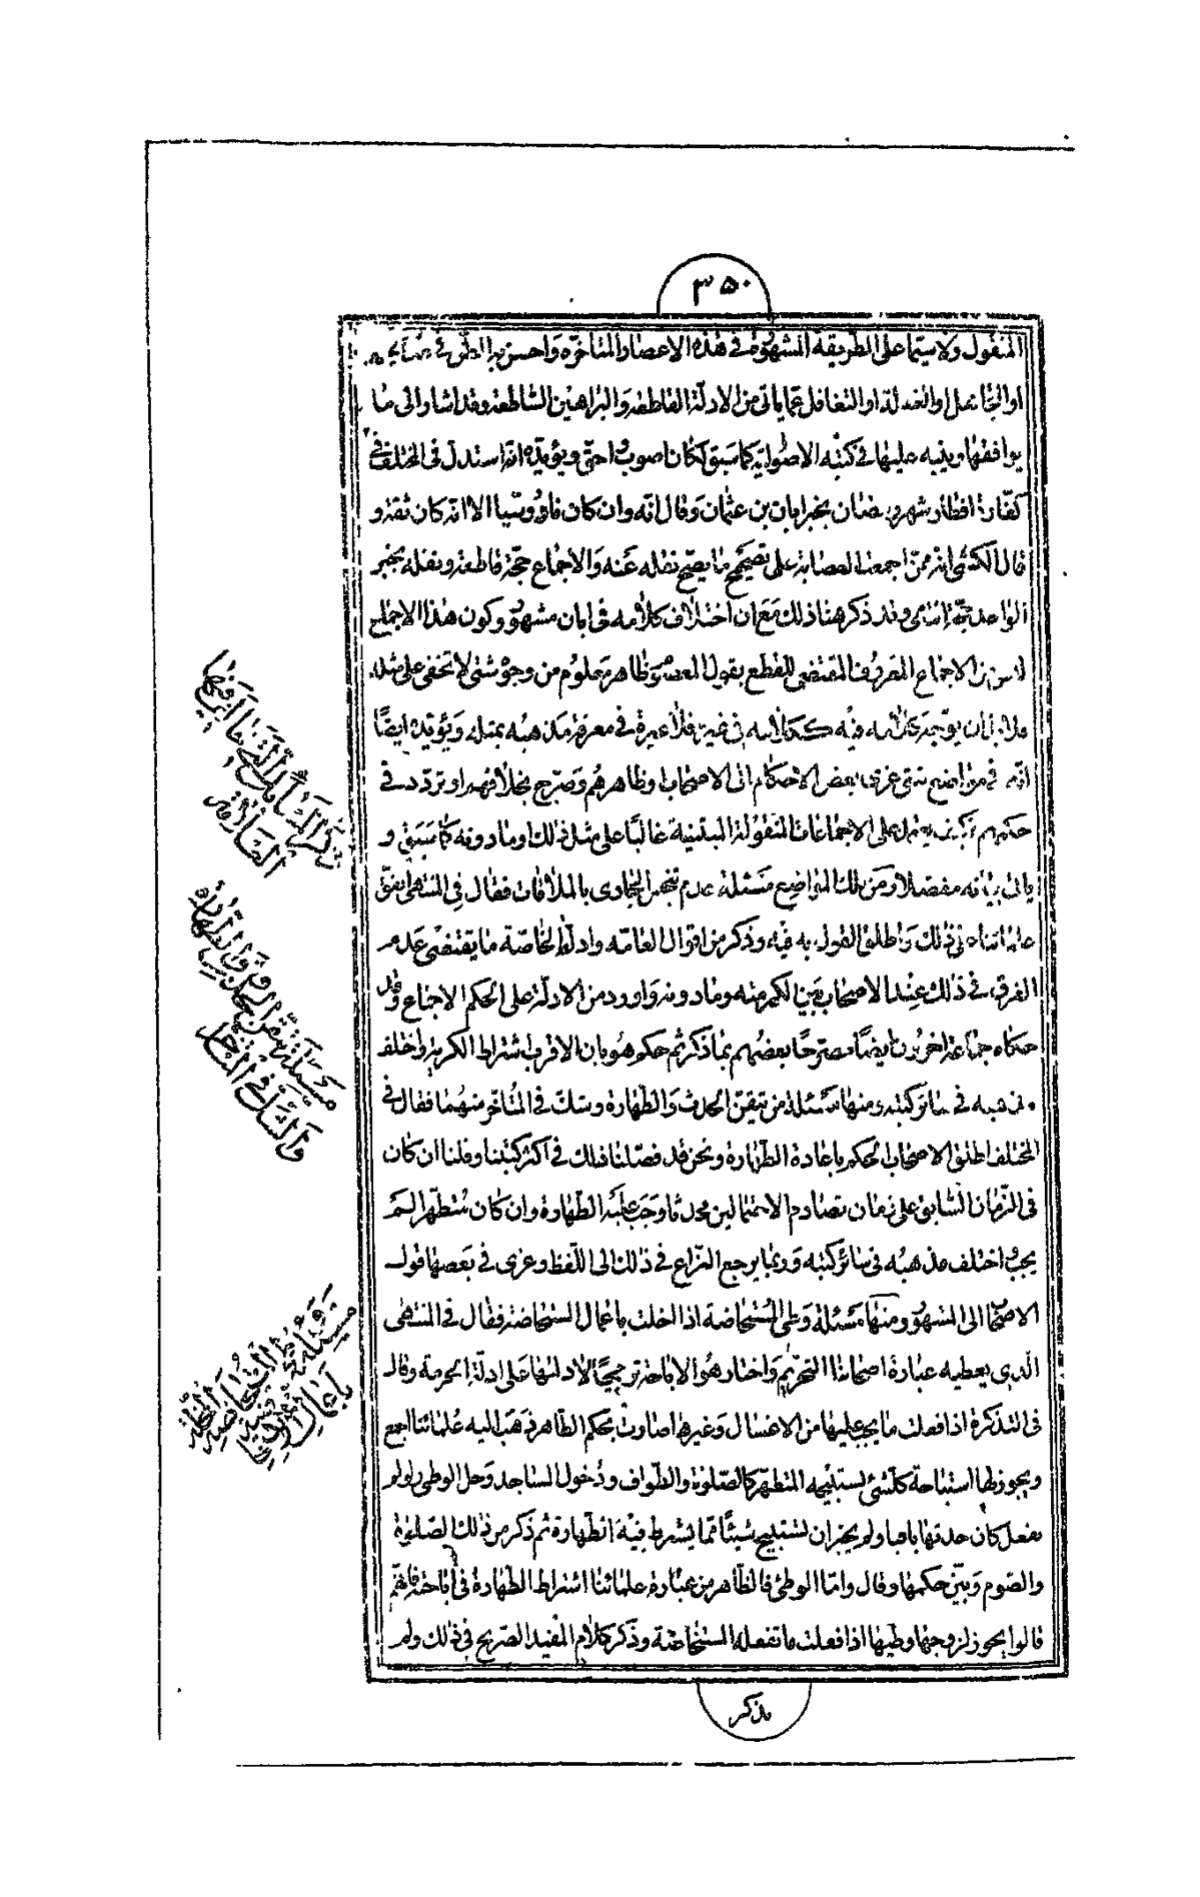 ٣٥٠
المنقول ولاسيما على الطريقة المشهورة في هذه الاعصار المتاخرة واحسن به الظن في
او التجاهل او الغفلة او التغافل عما ياتي من الادلة القاطعة والبراهين الساطعة وقد اشار الى ما
يوافقها وينبه عليها في كتبه الاصولية كما سبق لكان اصوب واحق ويؤيده انه استدل في المختلف في
كفارة افطار شهر رمضان بخبر ابان بن عثمان وقال انه وان كان ناووسيا الا انه كان ثقة و
قال الكشي انه ممن اجمعت العصابة على تصحيح ما يصح نقله عنه والاجماع حجة قاطعة ونقله بخبر
الواحد حجة انتهى وقد ذكر هنا ذلك مع ان اختلاف كلامه في ابان مشهور وكون هذا الاجماع
ليس من الاجماع المعروف المقتضي للقطع بقول المعصوم ظاهر معلوم من وجوه شتى لا تخفى على مثله
فلابد ان يوجه كلامه فيه ككلامه في غيره فلا عبرة في معرفة مذهبه بمثله ويؤيده ايضا
انه في مواضع شتى عزى بعض الاحكام الى الاصحاب او ظاهرهم وصرح بخلافهم او تردد في
حكمهم فكيف يعمل على الاجماعات المنقولة المبتنية غالبا على مثل ذلك او ما دونه كما سبق و
ياتي بيانه مفصلا ومن تلك المواضع مسئلة عدم تنجس الجارى بالملاقات فقال في المنتهى اتفق
علمائناه في ذلك واطلق القول به فيه وذكر من اقوال العامه وادلة الخاصة ما يقتضى عدم
الفرق في ذلك عند الاصحاب بين الكر منه وما دونه واورد من الادلة على الحكم الاجماع وقد
حكاه جماعة اخرون ايضا مصرحا بعضهم بما ذكر ثم حكم هو بان الاقرب اشتراط الكرية واختلف
مذهبه في سائر كتبه ومنها مسئلة من تيقن الحدث والطهارة وشك في المتاخر منهما فقال في
المختلف اطلق الاصحاب الحكم باعادة الطهارة ونحن قد فصلنا ذلك في اكثر كتبنا وقلنا ان كان
في الزمان السابق على زمان تصادم الاحتمالين محدثا وجب عليه الطهارة وان كان متطهرا لم
يجب واختلف مذهبه في سائر كتبه وربما يرجع النزاع في ذلك الى اللفظ وعزى في بعضها قول
الاصحاب الى المشهور ومنها مسئلة وطي المستحاضة اذا اخلت باعمال المستحاضة فقال في المنتهى
الذي يعطيه عبارة اصحابنا التحريم واختار هو الاباحة ترجيحا لادلتها على ادلة الحرمة وقال
في التذكرة اذا فعلت ما يجب عليها من الاغسال وغيرها صارت بحكم الطاهر ذهب اليه علمائنا اجمع
ويجوز لها استباحة كلشئ يستبيحه المتطهر كالصلوة والطواف ودخول المساجد وحل الوطي ولو لم
تفعل كان حدثها باقيا ولم يجز ان تستبيح شيئا مما يشترط فيه الطهارة ثم ذكر من ذلك الصلوة
والصوم وبين حكمها وقال واما الوطئ فالظاهر من عبارة علمائنا اشتراط الطهارة في اباحته فانهم
قالوا يجوز لزوجها وطيها اذا فعلت ما تفعله المستحاضة وذكر كلام المفيد الصريح في ذلك ولم
يذكر
ذكر المسائل التى
مسئلة من تيقن الحدث والطهارة
والشك في المتاخر
مسئلة وطى المستحاضة